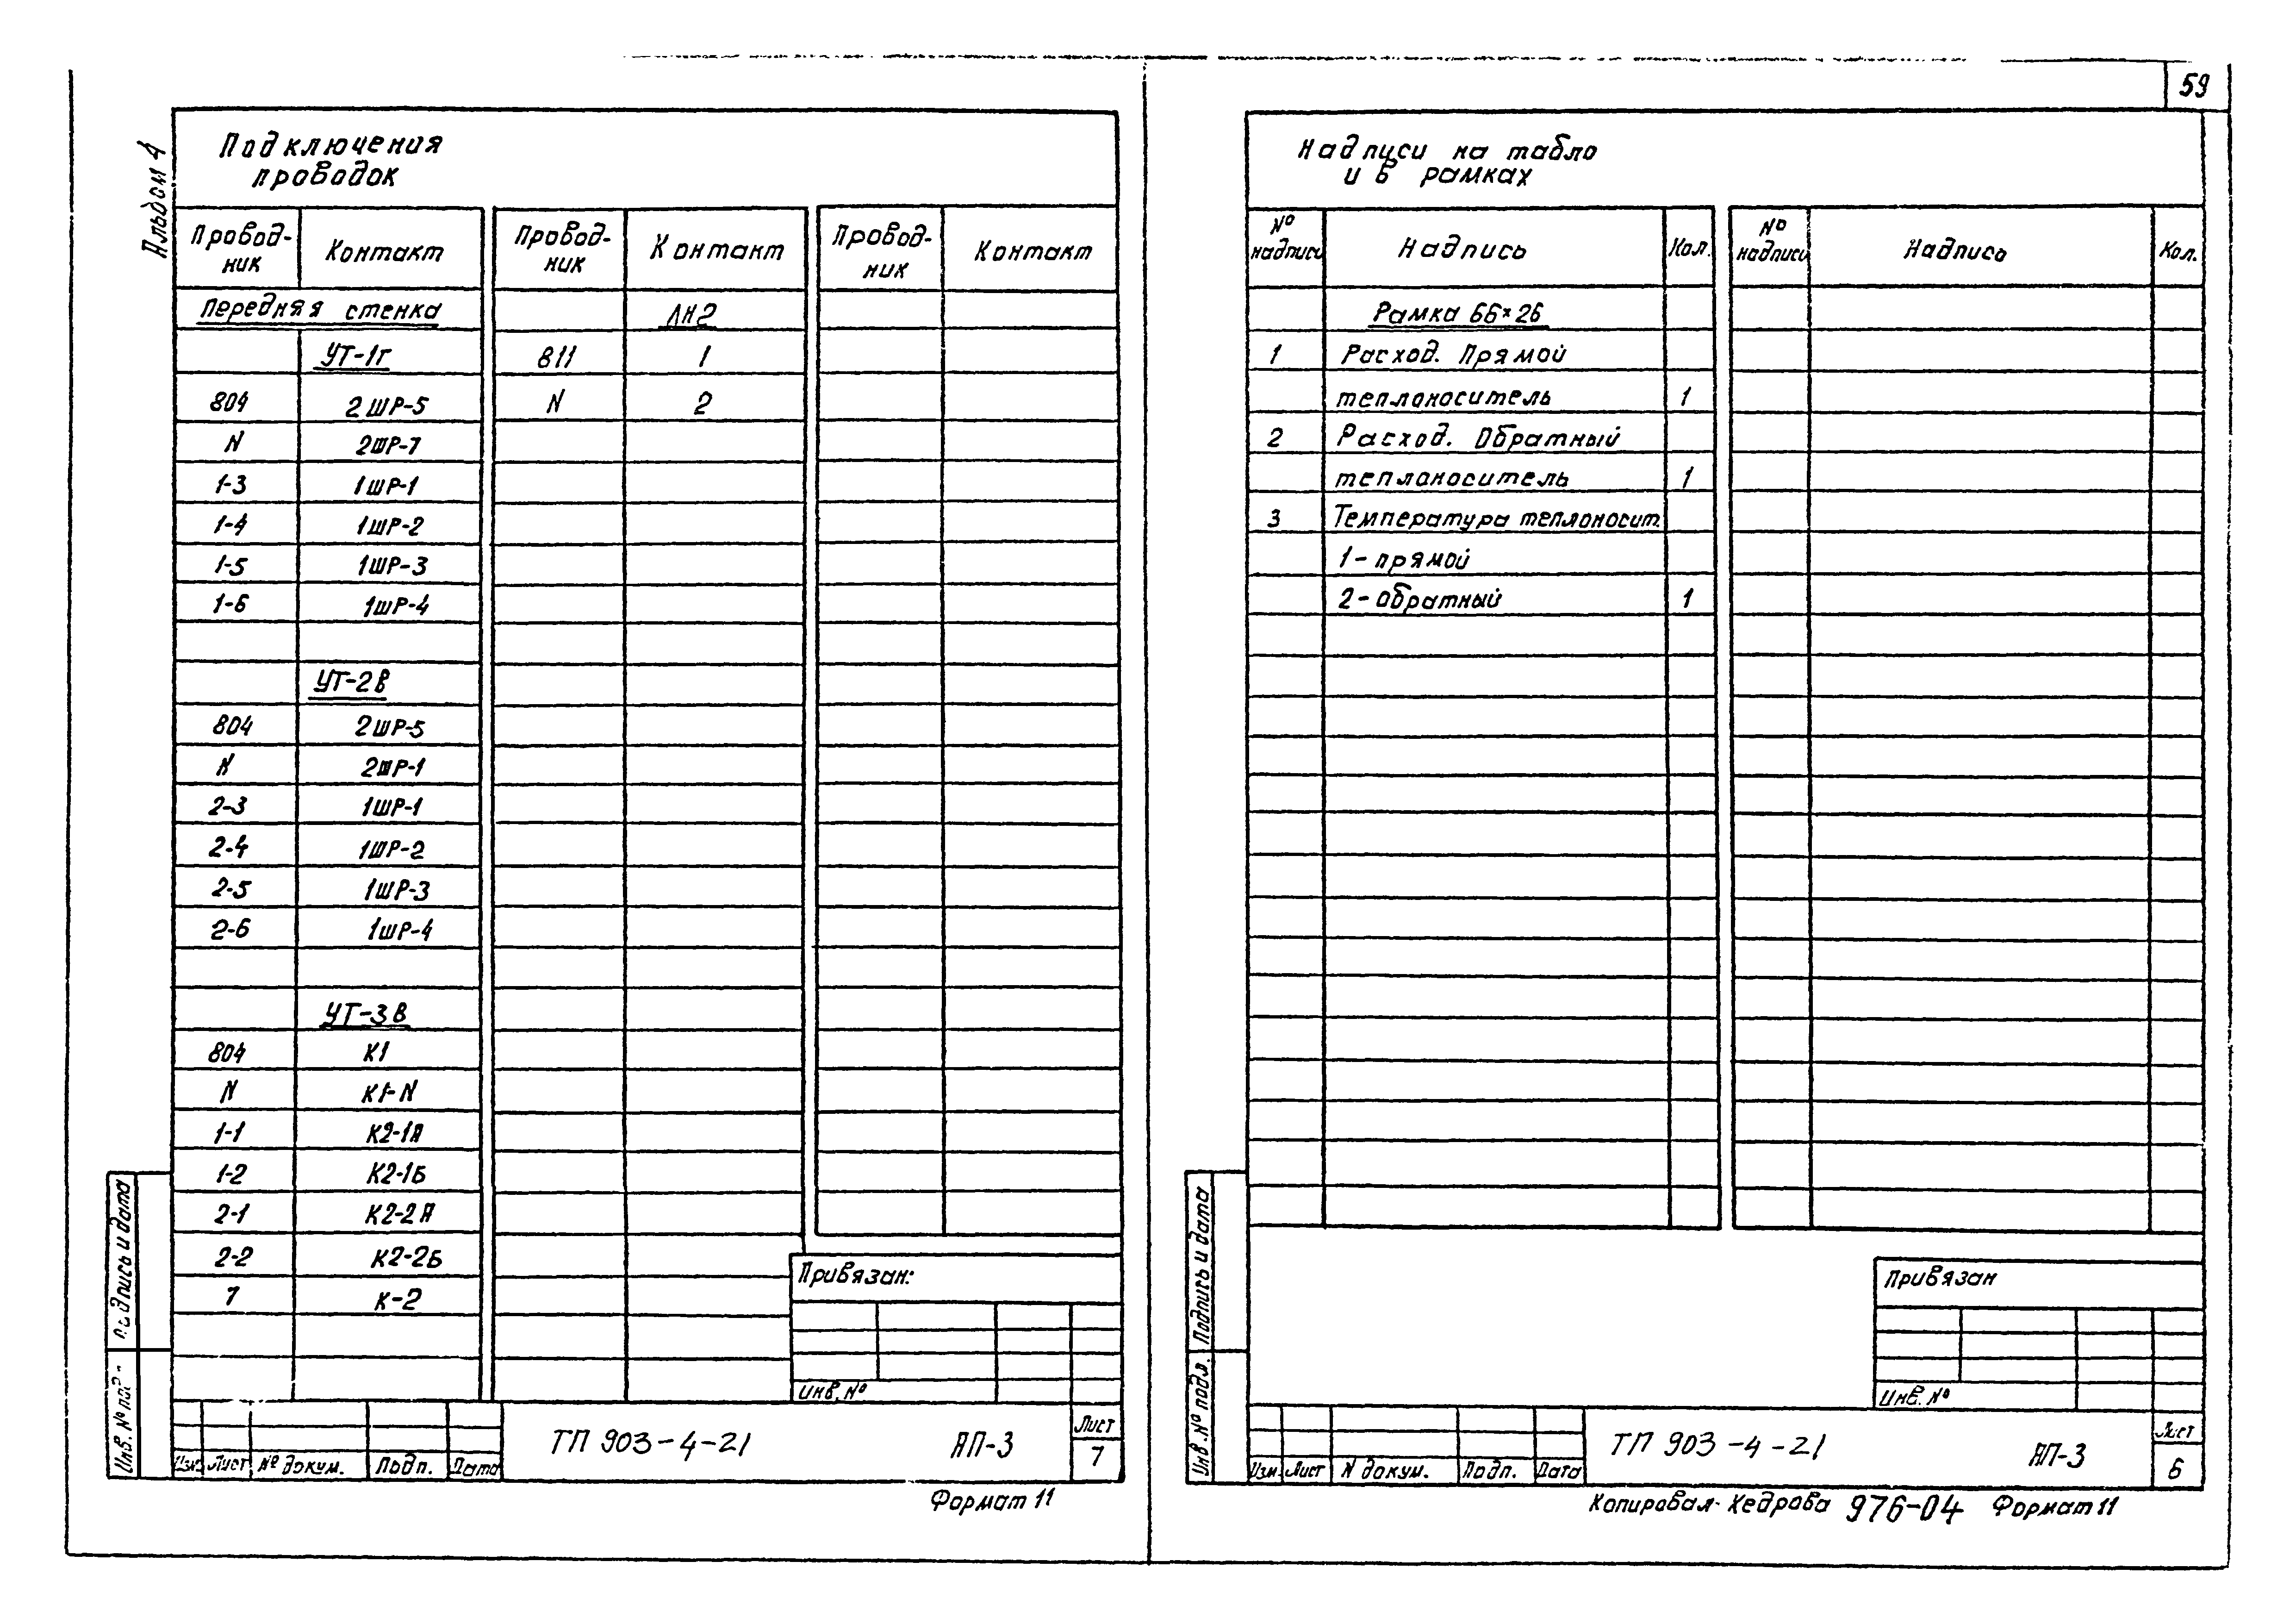 59
Альбом 4
Подключения
проводок
Провод-
ник
Контакт
Провод-
ник
Контакт
Провод-
ник
Контакт
Передняя стенка
УТ-1г
804 2ШР-5
N 2ШР-7
1-3 1ШР-1
1-4 1ШР-2
1-5 1ШР-3
1-6 1ШР-4
УТ-2В
804 2ШР-5
N 2ШР-1
2-3 1ШР-1
2-4 1ШР-2
2-5 1ШР-3
2-6 1ШР-4
УТ-3В
804 К1
N К1-N
1-1 К2-1А
1-2 К2-1Б
2-1 К2-2А
2-2 К2-2Б
1 К-2
ЛН2
811 1
N 2
Привязан:
Инв. №
Изм. Лист № докум. Подп. Дата
ТП 903-4-21 АП-3
Лист
7
Формат 11
Подпись и дата
Инв. № подл.
Надписи на табло
и в рамках
№
надписи
Надпись
Кол.
№
надписи
Надпись
Кол.
Рамка 66×26
1 Расход. Прямой
теплоноситель 1
2 Расход. Обратный
теплоноситель 1
3 Температура теплоносит.
1- прямой
2- обратный 1
Привязан
Инв. №
Изм. Лист N докум. Подп. Дата
ТП 903-4-21 АП-3
Лист
6
Копировал- Кедрова 976-04 Формат 11
Подпись и дата
Инв. № подл.